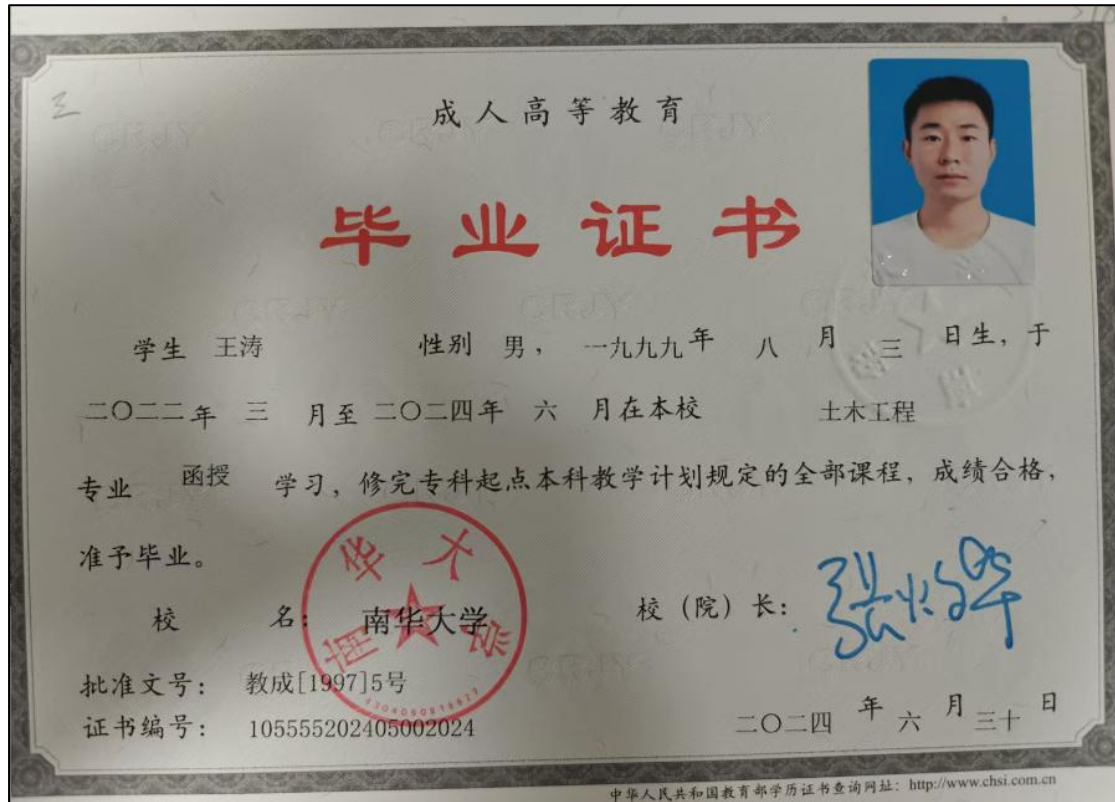 成人高等教育
毕业证书
学生 王涛 性别 男， 一九九九年 八 月 三 日生，于
二〇二二年 三 月至 二〇二四年 六 月在本校 土木工程
专业 函授 学习，修完专科起点本科教学计划规定的全部课程，成绩合格，
准予毕业。
校 名： 南华大学 校（院）长：
南华大学
批准文号： 教成[1997]5号
证书编号： 105555202405002024
二〇二四 年 六 月 三十 日
中华人民共和国教育部学历证书查询网址：http://www.chsi.com.cn